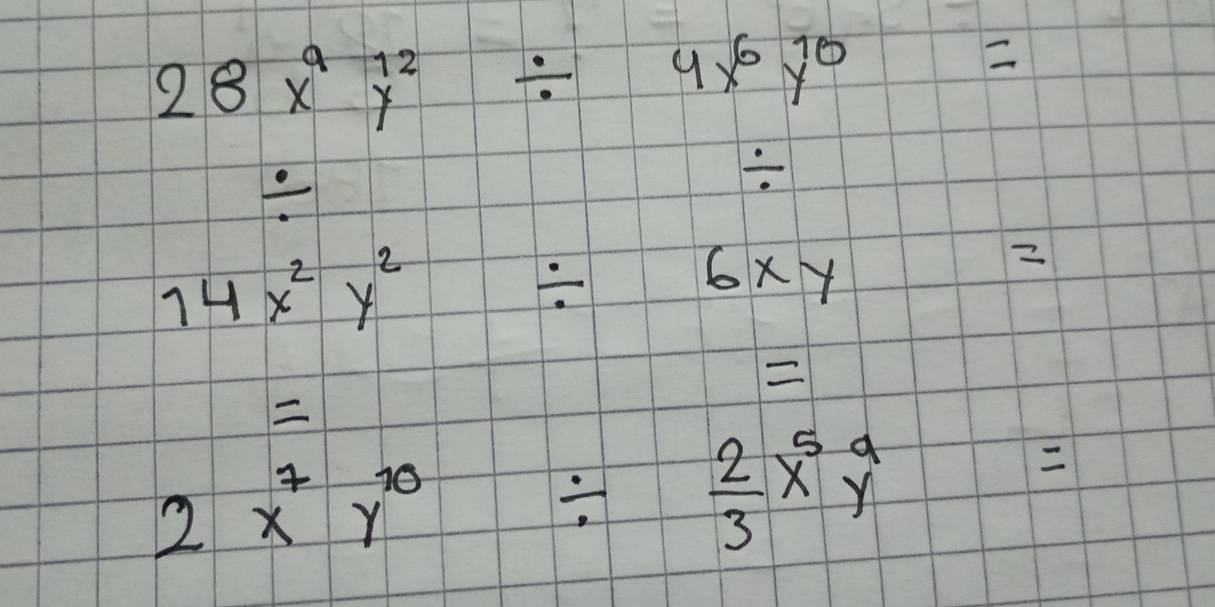 28 x⁹ y¹² ÷ 4x⁶ y¹⁰ =
÷ ÷
14 x² y² ÷ 6xy =
= =
2 x⁷ y¹⁰ ÷ 2/3 x⁵ y⁹ =